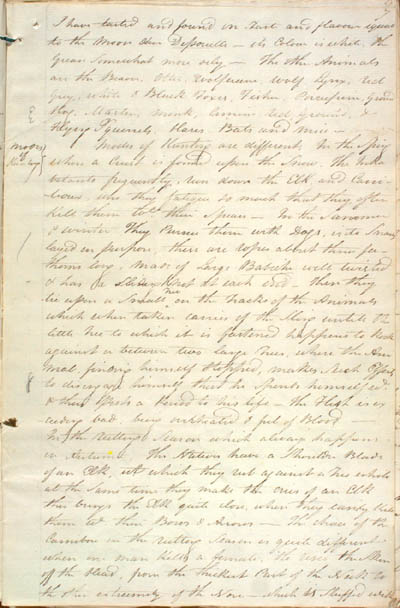 I have tasted and found in taste and flavor equal
to the Moose Deer Dessouille — its Colour is white. the
Grease Somewhat more oily — The other Animals
are the Beaver, Otter, Wolfverene, Wolf, Lynx, Red
Grey, white & Black Foxes, Fisher, Porcupine, Ground
Hog, Marten, Mink, Ermine, red, Ground, &
Flying Squirrels, Hares, Bats and mice —
Modes of
Hunting
Modes of Hunting are different, In the Spring
when a Crust is formed upon the Snow, the Inha
bitants frequently, run down the Elk and Carri
bous, who they fatigue so much that they often
kill them with their Spears — In the Summer
& winter They Pursue them with Dogs, into Snares
laced on purpose, these are ropes about three fa
thoms long, made of large Babiche well twisted
& has a Strong Knot at each End — these they
tie upon a Small Tree, on the tracks of the Animals
which when taken carries of the Sling until the
little Tree to which it is fastened happens to hook
against or between two large trees, where the Ani
mal, finding himself Stopped, makes such Effort
to disengage himself that he Spends himself
& thus Puts a Period to his life — the Flesh is ex
ceeding bad, being overheated & full of Blood —
In the Rutting Season which always happens
in Autumn, The Natives have a Shoulder Blade
of an Elk, with which they rub against a Tree while
at the Same time they make the cries of an Elk
this brings the Elk quite close, when they easily kill
them with their Bows & Arrows — The chase of the
Carribou in the rutting Season is quite different
when one man kills a female, He uses the Skin
off the Head, from the thickest Part of the Neck to
the other extremity of the Nose — which is Stuffed with